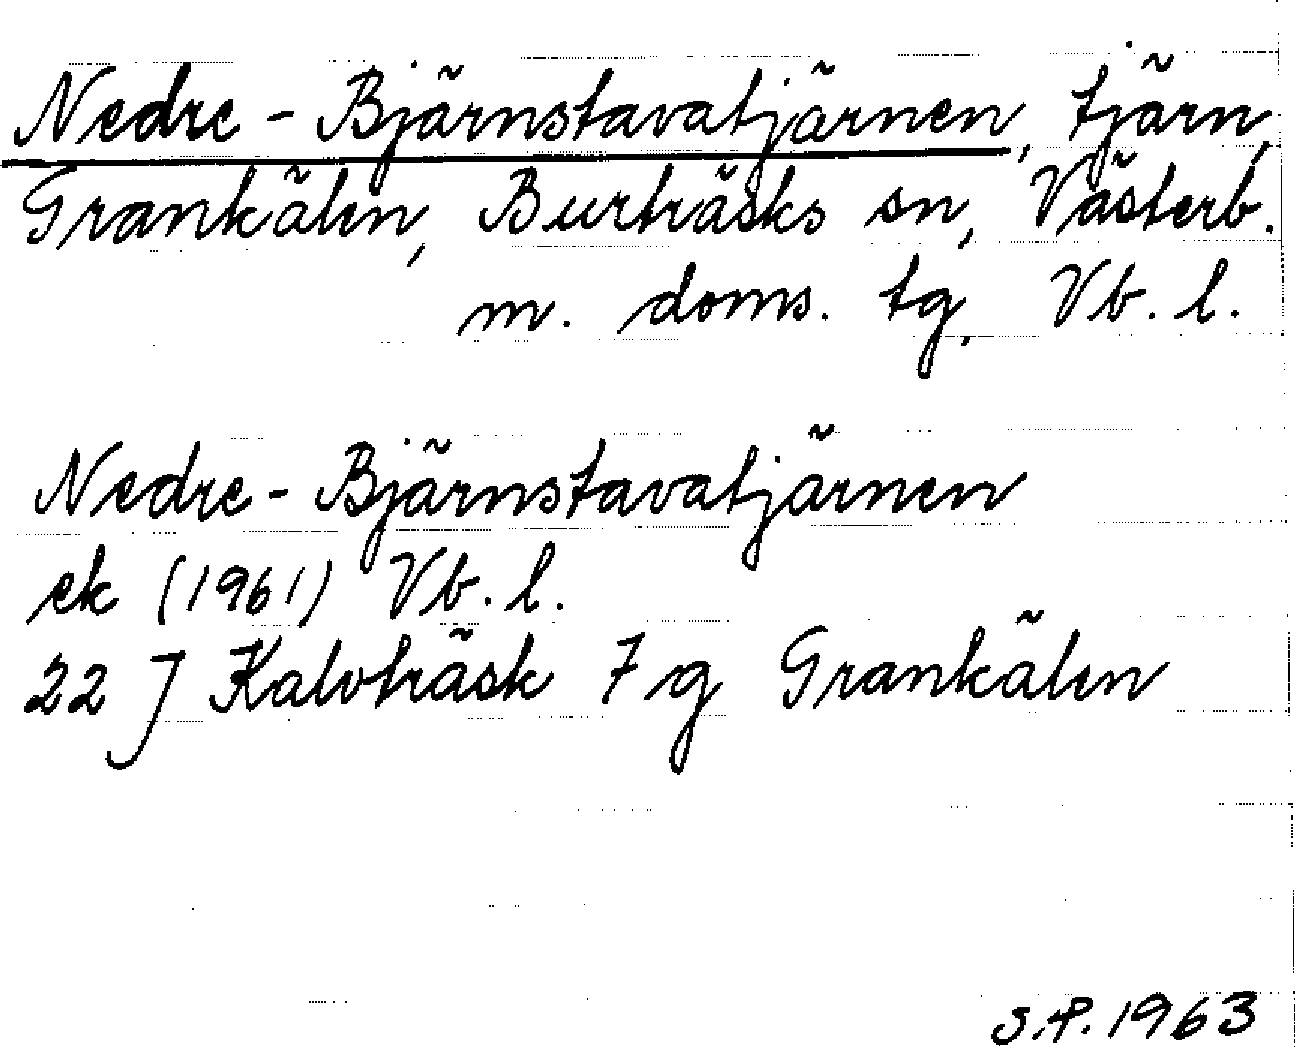 Nedre-Bjärnstavatjärnen, tjärn,
Grankälen, Burträsks sn, Västerb.
m. doms. tg, Vb. l.
Nedre-Bjärnstavatjärnen
ek (1961) Vb. l.
22 J Kalvträsk 7 g Grankälen
S.P. 1963